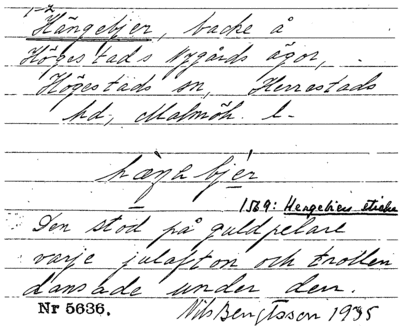 1-2
Hängebjer, backe å
Högestads Nygårds ägor,
Högestads sn, Herrestads
hd, Malmöh. l.
hæŋabjér
1569: Hengebier
Den stod på guldpelare
varje julafton och trollen
dansade under den.
Nr 5636. Nils Bengtsson 1935